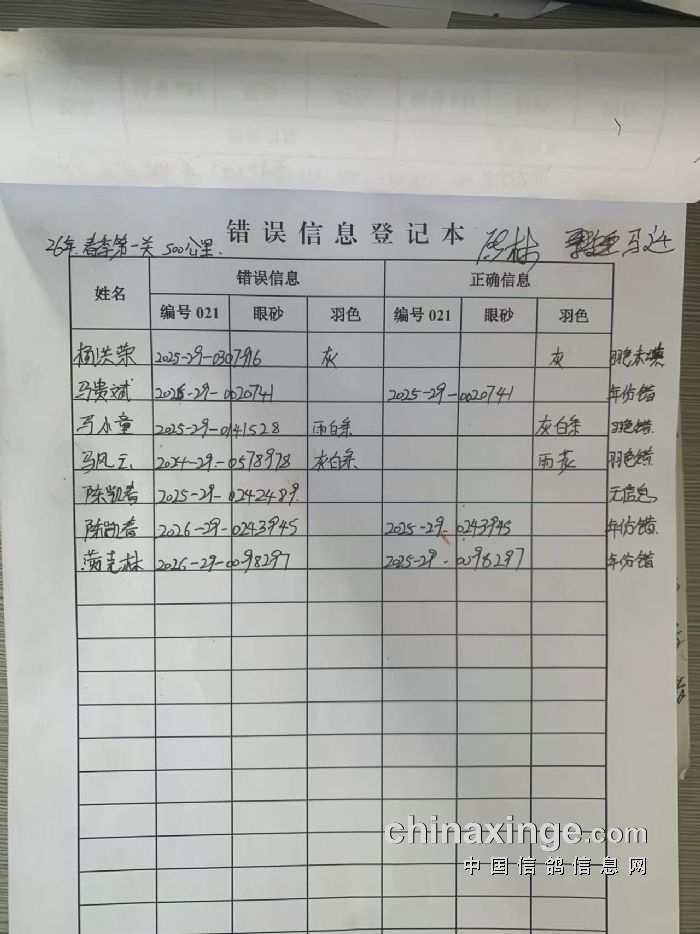 错误信息登记本
26年.春季第一关 500公里. 马
姓名 错误信息 正确信息
编号 021 眼砂 羽色 编号 021 眼砂 羽色
杨洪荣 2025-29-0307916 灰 灰 羽色未填
马贵斌 2026-29-0020741 2025-29-0020741 年份错
马小童 2025-29-0141528 雨白条 灰白条 羽色错
马风云 2024-29-0578978 灰白条 雨花 羽色错
陈凯春 2025-29-0242489. 无信息
陈凯春 2026-29-0243945 2025-29-0243945 年份错
克林 2026-29-0098297 2025-29-0098297 年份错
chinaxinge.com
中国信鸽信息网